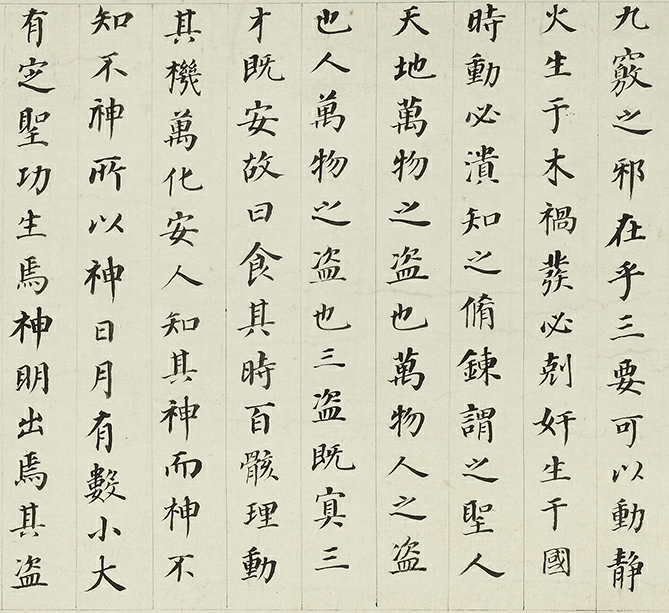 九竅之邪在乎三要可以動靜
火生于木禍發必剋奸生于國
時動必潰知之脩鍊謂之聖人
天地萬物之盗也萬物人之盗
也人萬物之盗也三盗既冥三
才既安故曰食其時百骸理動
其機萬化安人知其神而神不
知不神所以神日月有數小大
有定聖功生焉神明出焉其盗